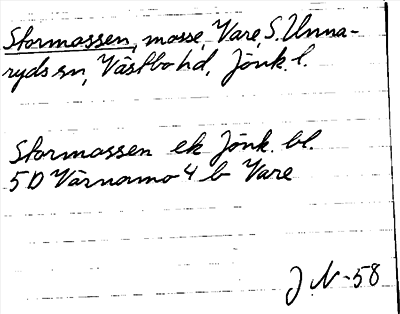 Stormossen, mosse, Vare, S. Unna-
ryds sn, Västbo hd, Jönk. l.
Stormossen ek Jönk. bl.
5D Värnamo 4 b Vare
J N-58